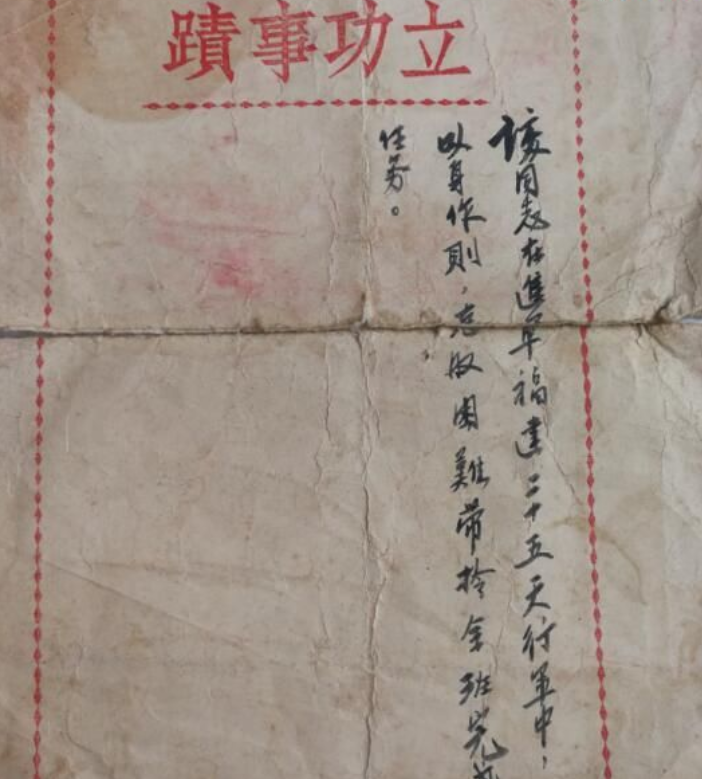 立功事蹟
該同志在進军福建二十五天行軍中，
以身作則，克服困難帶拎全班完成
任务。